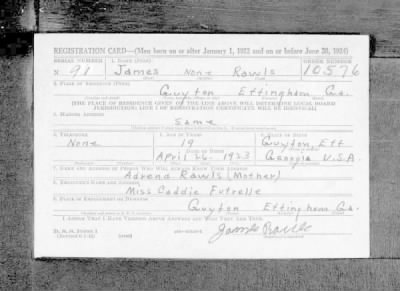 REGISTRATION CARD—(Men born on or after January 1, 1922 and on or before June 30, 1924)
SERIAL NUMBER 1. NAME (Print) ORDER NUMBER
N 91 James None Rawls 10576
(First) (Middle) (Last)
2. PLACE OF RESIDENCE (Print)
Guyton Effingham Ga.
[THE PLACE OF RESIDENCE GIVEN ON THE LINE ABOVE WILL DETERMINE LOCAL BOARD
JURISDICTION; LINE 2 OF REGISTRATION CERTIFICATE WILL BE IDENTICAL]
3. MAILING ADDRESS
Same
4. TELEPHONE 5. AGE IN YEARS 6. PLACE OF BIRTH
None 19 Guyton Eff
DATE OF BIRTH
April 26, 1923 Georgia U.S.A.
7. NAME AND ADDRESS OF PERSON WHO WILL ALWAYS KNOW YOUR ADDRESS
Adrena Rawls (Mother)
8. EMPLOYER'S NAME AND ADDRESS
Miss Caddie Futrelle
9. PLACE OF EMPLOYMENT OR BUSINESS
Guyton Effingham Ga.
I AFFIRM THAT I HAVE VERIFIED ABOVE ANSWERS AND THAT THEY ARE TRUE.
D. S. S. Form 1
James Rawls